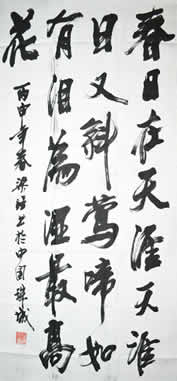 春日在天涯天涯
日又斜鶯啼如
有泪為湿最高
花
丙申年春梁 书於中国珠城